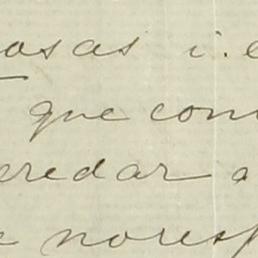 osas i.e
que com
redar a
noresp